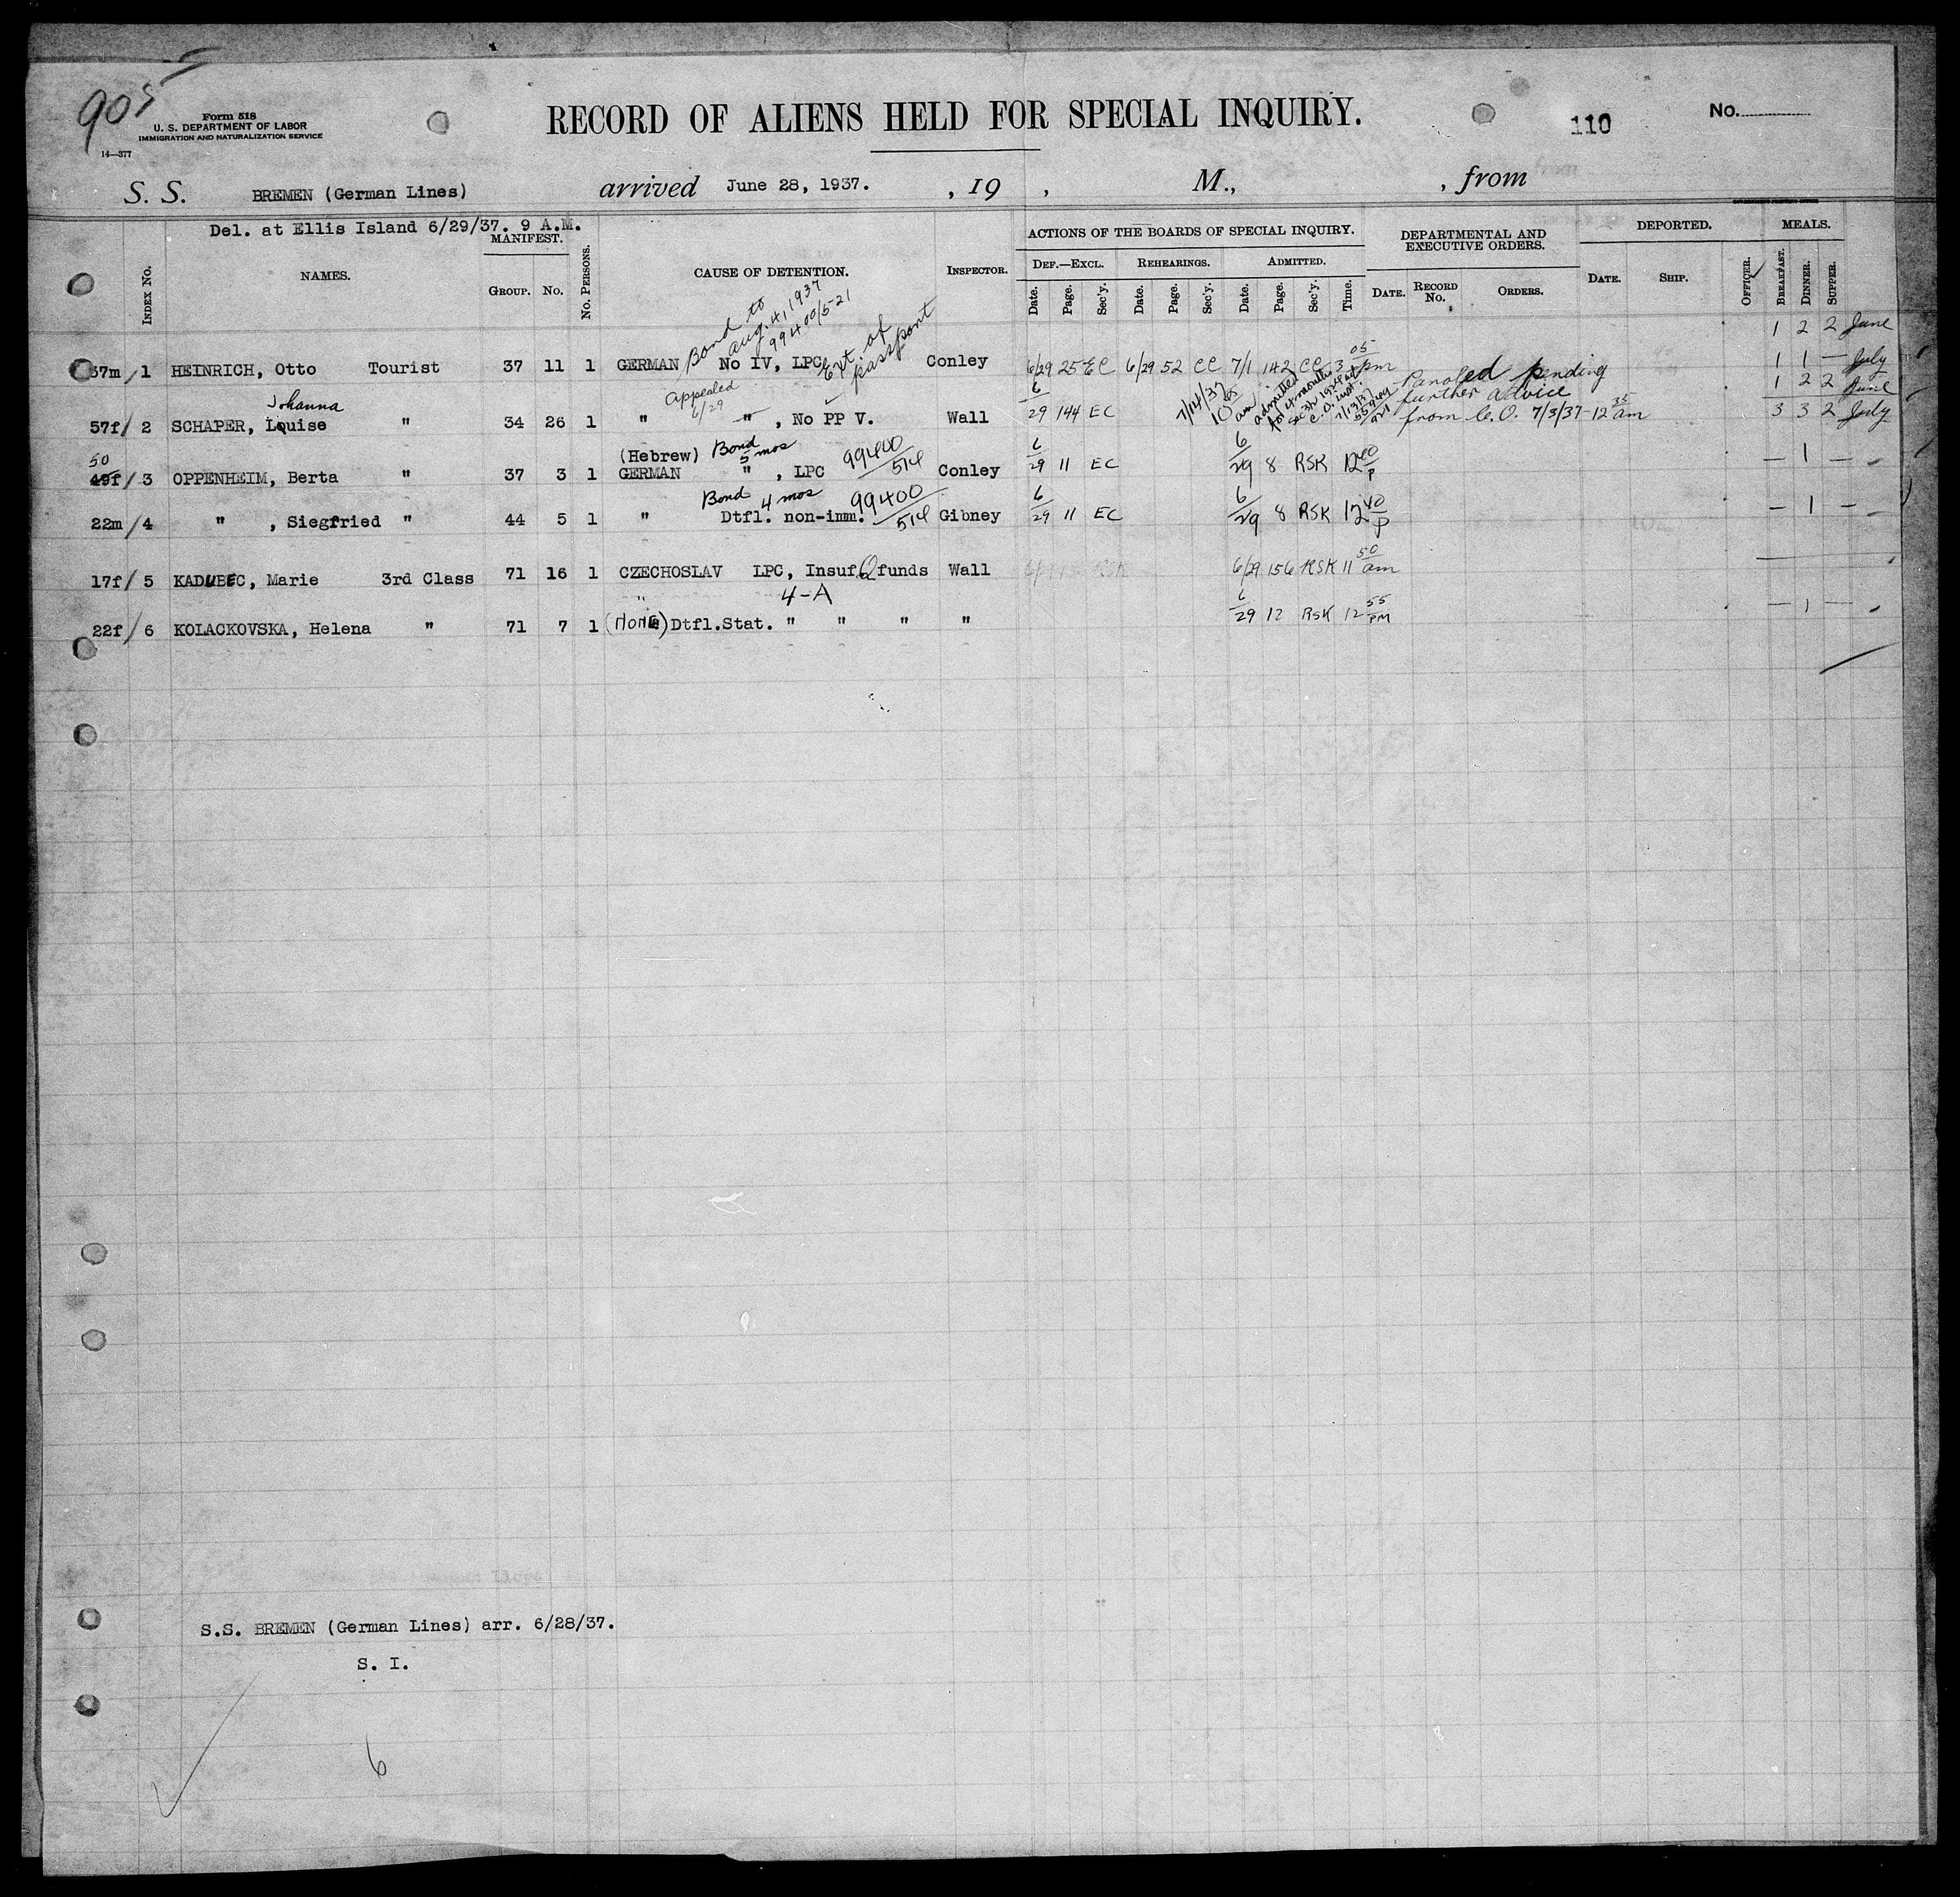 905
Form 518
U. S. DEPARTMENT OF LABOR
IMMIGRATION AND NATURALIZATION SERVICE
14—377
RECORD OF ALIENS HELD FOR SPECIAL INQUIRY.
110
No.
S. S. BREMEN (German Lines) arrived June 28, 1937. , 19 , M., , from
Del. at Ellis Island 6/29/37. 9 A.M.
INDEX NO.
NAMES.
MANIFEST.
GROUP. NO.
NO. PERSONS.
CAUSE OF DETENTION.
INSPECTOR.
ACTIONS OF THE BOARDS OF SPECIAL INQUIRY.
DEF.—EXCL. REHEARINGS. ADMITTED.
Date. Page. Sec'y. Date. Page. Sec'y. Date. Page. Sec'y. Time.
DEPARTMENTAL AND
EXECUTIVE ORDERS.
DATE. RECORD NO. ORDERS.
DEPORTED.
DATE. SHIP. OFFICER.
MEALS.
BREAKFAST. DINNER. SUPPER.
Bond to
Aug. 4, 1937
99400/521
Ext. of
passport
1 2 2 June
57m/ 1 HEINRICH, Otto Tourist 37 11 1 GERMAN No IV, LPC Conley 6/29 25 EC 6/29 52 CC 7/1 142 CC 3 05 pm 1 1 — July
Appealed
6/29
7/14/37
10 am admitted
for 4 months
Paroled pending
further advice
from C.O. 7/3/37-12 35 am
1 2 2 June
Johanna
57f/ 2 SCHAPER, Louise " 34 26 1 " " , No PP V. Wall 6/29 144 EC 3 3 2 July
(Hebrew) Bond
5 mos 99400/514
50
49f/ 3 OPPENHEIM, Berta " 37 3 1 GERMAN " , LPC Conley 6/29 11 EC 6/29 8 RSK 12 40 P — 1 —
Bond 4 mos 99400/514
22m/ 4 " , Siegfried " 44 5 1 " Dtfl. non-imm. Gibney 6/29 11 EC 6/29 8 RSK 12 40 P — 1 —
17f/ 5 KADUBEC, Marie 3rd Class 71 16 1 CZECHOSLAV LPC, Insuf. funds Wall 6/29 156 RSK 11 50 am
" 4-A
22f/ 6 KOLACKOVSKA, Helena " 71 7 1 (None) Dtfl.Stat. " " " " 6/29 12 RSK 12 55 PM — 1 —
S.S. BREMEN (German Lines) arr. 6/28/37.
S. I.
6